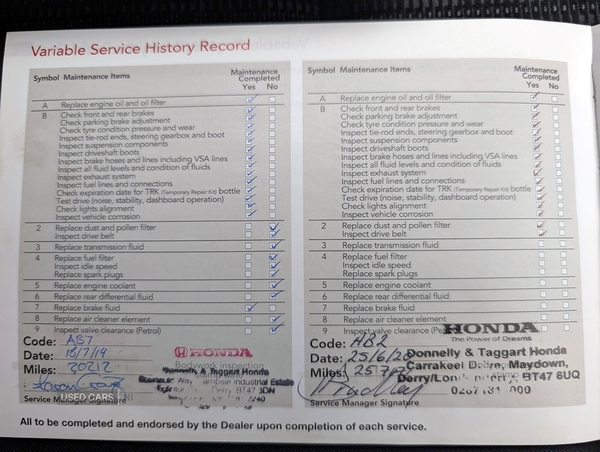 Variable Service History Record
Symbol Maintenance Items Maintenance Completed Yes No
A Replace engine oil and oil filter
B Check front and rear brakes
Check parking brake adjustment
Check tyre condition pressure and wear
Inspect tie-rod ends, steering gearbox and boot
Inspect suspension components
Inspect driveshaft boots
Inspect brake hoses and lines including VSA lines
Inspect all fluid levels and condition of fluids
Inspect exhaust system
Inspect fuel lines and connections
Check expiration date for TRK (Temporary Repair Kit) bottle
Test drive (noise, stability, dashboard operation)
Check lights alignment
Inspect vehicle corrosion
2 Replace dust and pollen filter
Inspect drive belt
3 Replace transmission fluid
4 Replace fuel filter
Inspect idle speed
Replace spark plugs
5 Replace engine coolant
6 Replace rear differential fluid
7 Replace brake fluid
8 Replace air cleaner element
9 Inspect valve clearance (Petrol)
Code: AB7
Date: 18/7/19
Miles: 20212
HONDA
Bodywork inspection
Donnelly & Taggart Honda
Industrial Estate
Derry BT47 3DN
Service Manager Signature
USED CARS
Symbol Maintenance Items Maintenance Completed Yes No
A Replace engine oil and oil filter
B Check front and rear brakes
Check parking brake adjustment
Check tyre condition pressure and wear
Inspect tie-rod ends, steering gearbox and boot
Inspect suspension components
Inspect driveshaft boots
Inspect brake hoses and lines including VSA lines
Inspect all fluid levels and condition of fluids
Inspect exhaust system
Inspect fuel lines and connections
Check expiration date for TRK (Temporary Repair Kit) bottle
Test drive (noise, stability, dashboard operation)
Check lights alignment
Inspect vehicle corrosion
2 Replace dust and pollen filter
Inspect drive belt
3 Replace transmission fluid
4 Replace fuel filter
Inspect idle speed
Replace spark plugs
5 Replace engine coolant
6 Replace rear differential fluid
7 Replace brake fluid
8 Replace air cleaner element
9 Inspect valve clearance
HONDA
The Power of Dreams
Code: AB2
Date: 25/6/20
Miles:
Donnelly & Taggart Honda
Carrakeel Drive, Maydown,
BT47 6UQ
Service Manager Signature
All to be completed and endorsed by the Dealer upon completion of each service.